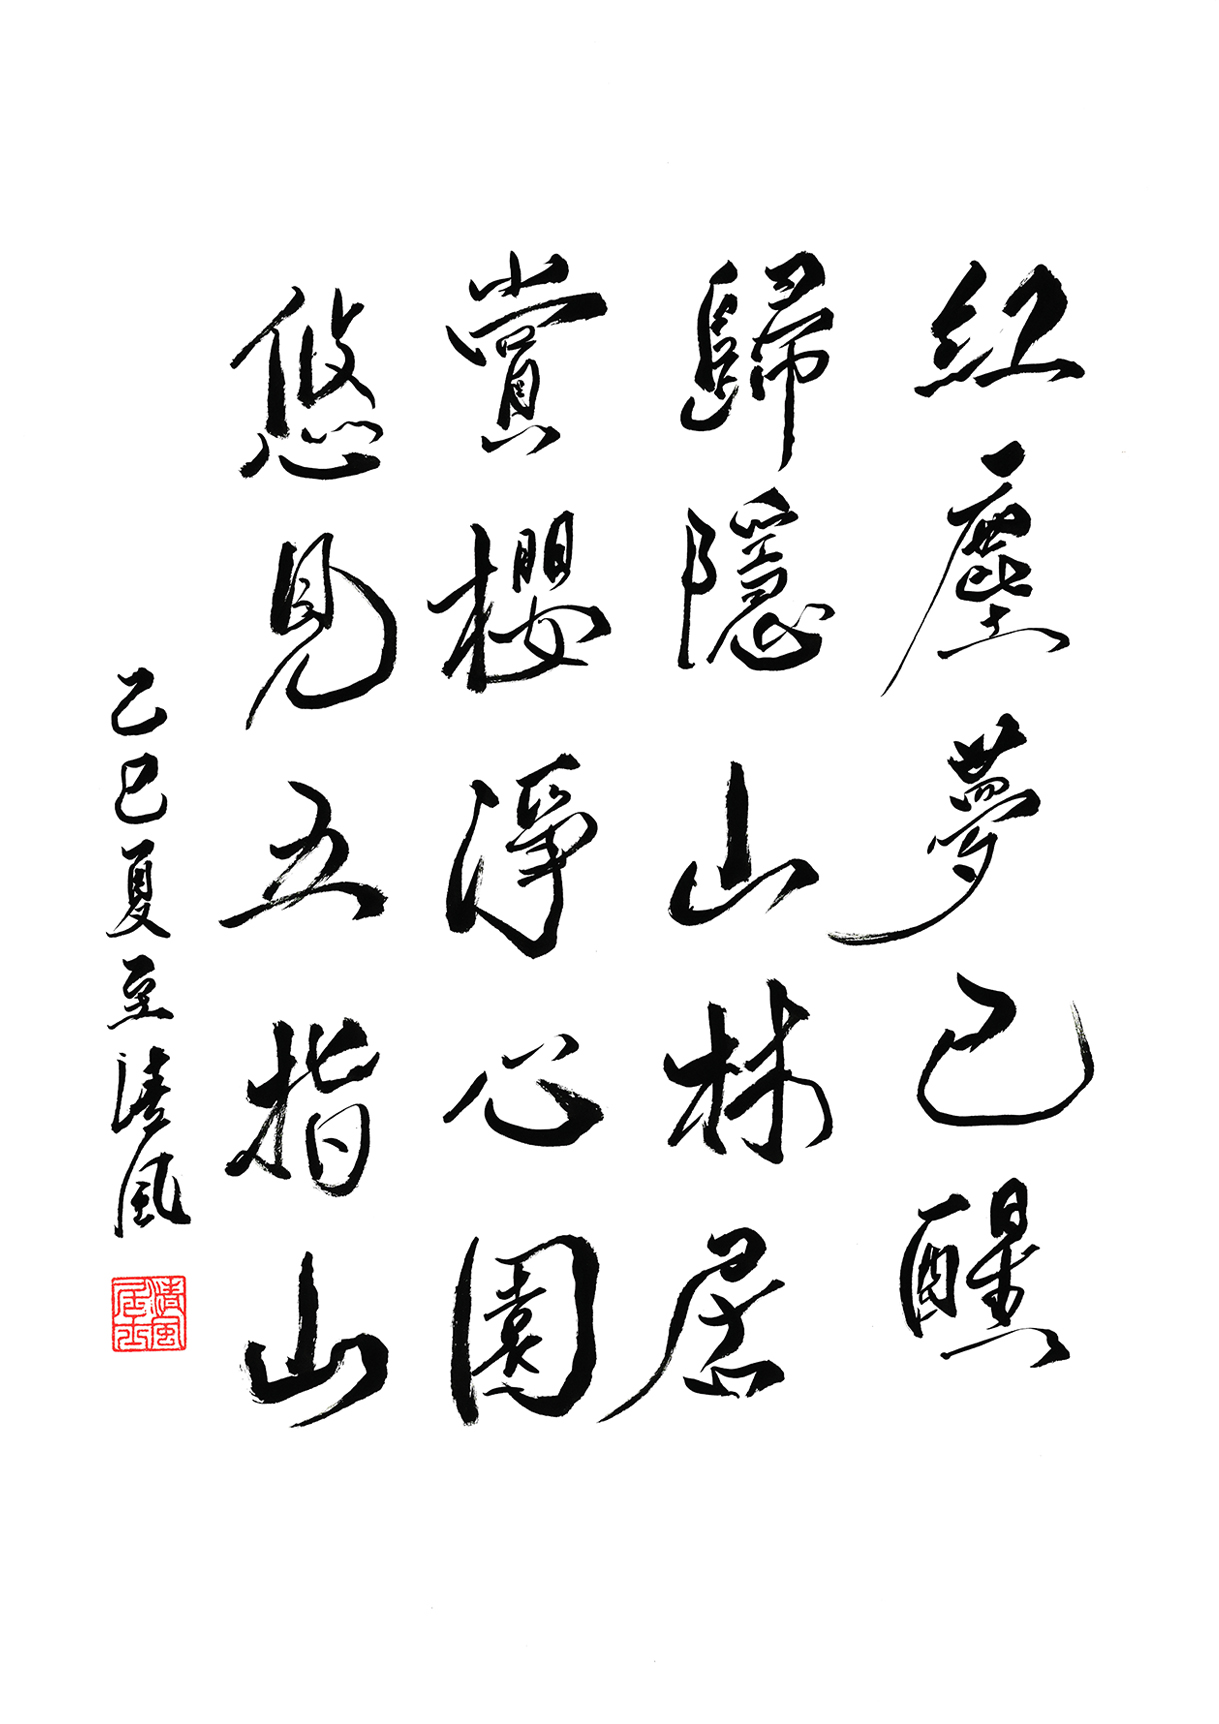 紅塵夢已醒
歸隱山林居
賞櫻淨心園
悠見五指山
乙巳夏至清風
清風居士